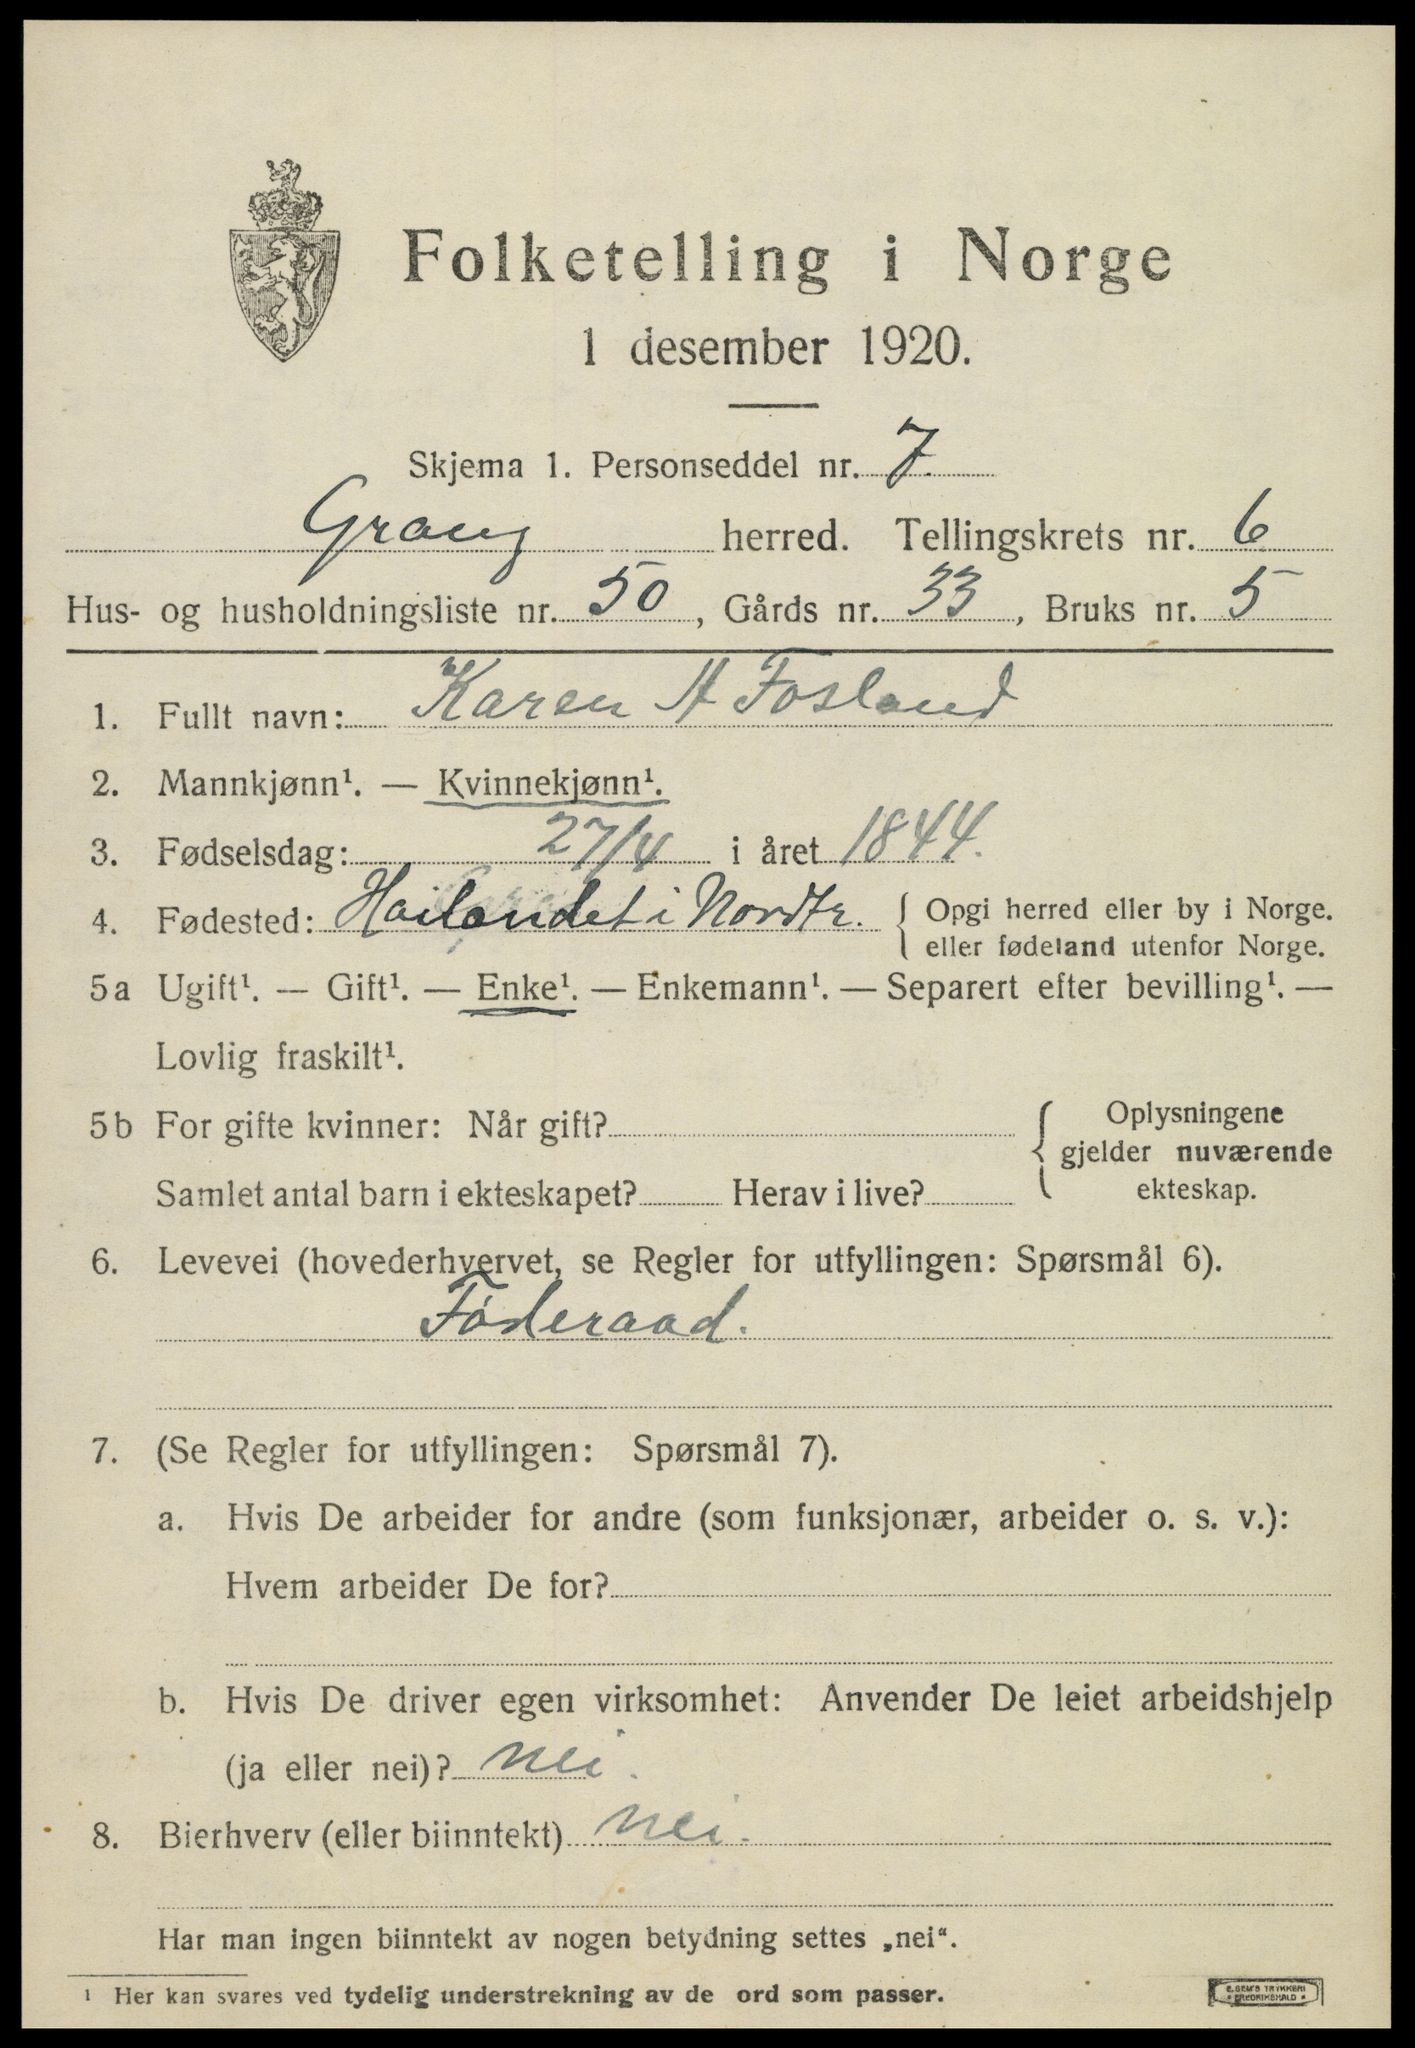 Folketelling i Norge
1 desember 1920.
Skjema 1. Personseddel nr. 7
Grong herred. Tellingskrets nr. 6
Hus- og husholdningsliste nr. 50, Gårds nr. 33, Bruks nr. 5
1. Fullt navn: Karen A Fosland
2. Mannkjønn¹. — Kvinnekjønn¹.
3. Fødselsdag: 27/4 i året 1844.
4. Fødested: Høilandet i Nordtr. { Opgi herred eller by i Norge.
eller fødeland utenfor Norge.
5a Ugift¹. — Gift¹. — Enke¹. — Enkemann¹. — Separert efter bevilling¹. —
Lovlig fraskilt¹.
5b For gifte kvinner: Når gift? { Oplysningene
gjelder nuværende
Samlet antal barn i ekteskapet? Herav i live? ekteskap.
6. Levevei (hovederhvervet, se Regler for utfyllingen: Spørsmål 6).
Føderaad.
7. (Se Regler for utfyllingen: Spørsmål 7).
a. Hvis De arbeider for andre (som funksjonær, arbeider o. s. v.):
Hvem arbeider De for?
b. Hvis De driver egen virksomhet: Anvender De leiet arbeidshjelp
(ja eller nei)? nei.
8. Bierhverv (eller biinntekt) nei.
Har man ingen biinntekt av nogen betydning settes „nei“.
¹ Her kan svares ved tydelig understrekning av de ord som passer.
E. SEM'S TRYKKERI
FREDRIKSHALD